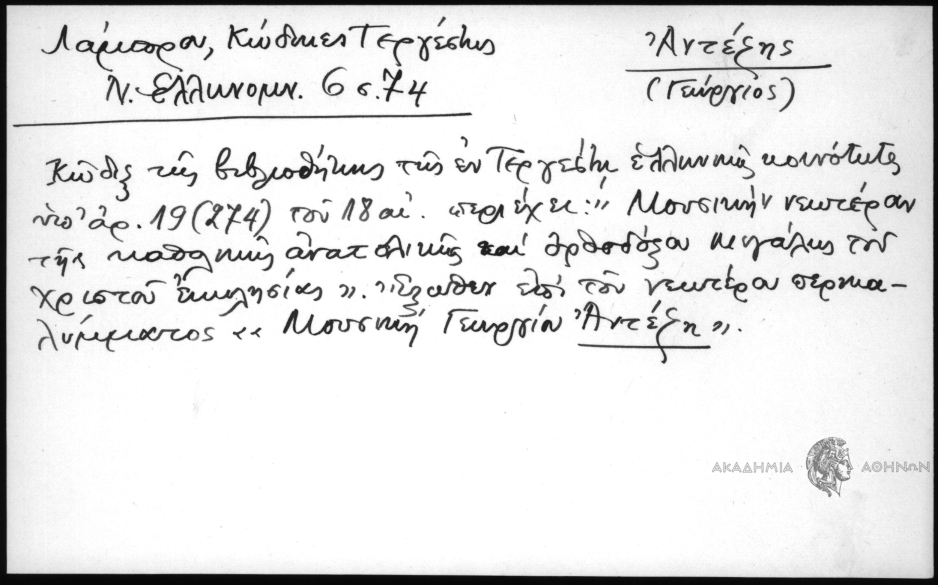 Λάμπρου, Κώδικες Τεργέστης
Ν. Ἑλληνομν. 6 σ. 74
Ἀντέξης
(Γεώργιος)
Κῶδιξ τῆς βιβλιοθήκης τῆς ἐν Τεργέστῃ ἑλληνικῆς κοινότητος
ὑπ' ἀρ. 19 (274) τοῦ 18 αἰ. περιέχει: "Μουσικὴν νεωτέραν
τῆς καθολικῆς ἀνατολικῆς καὶ ὀρθοδόξου μεγάλης τοῦ
Χριστοῦ Ἐκκλησίας". Ἔξωθεν ἐπὶ τοῦ νεωτέρου περικα-
λύμματος «Μουσικὴ Γεωργίου Ἀντέξη».
ΑΚΑΔΗΜΙΑ ΑΘΗΝΩΝ